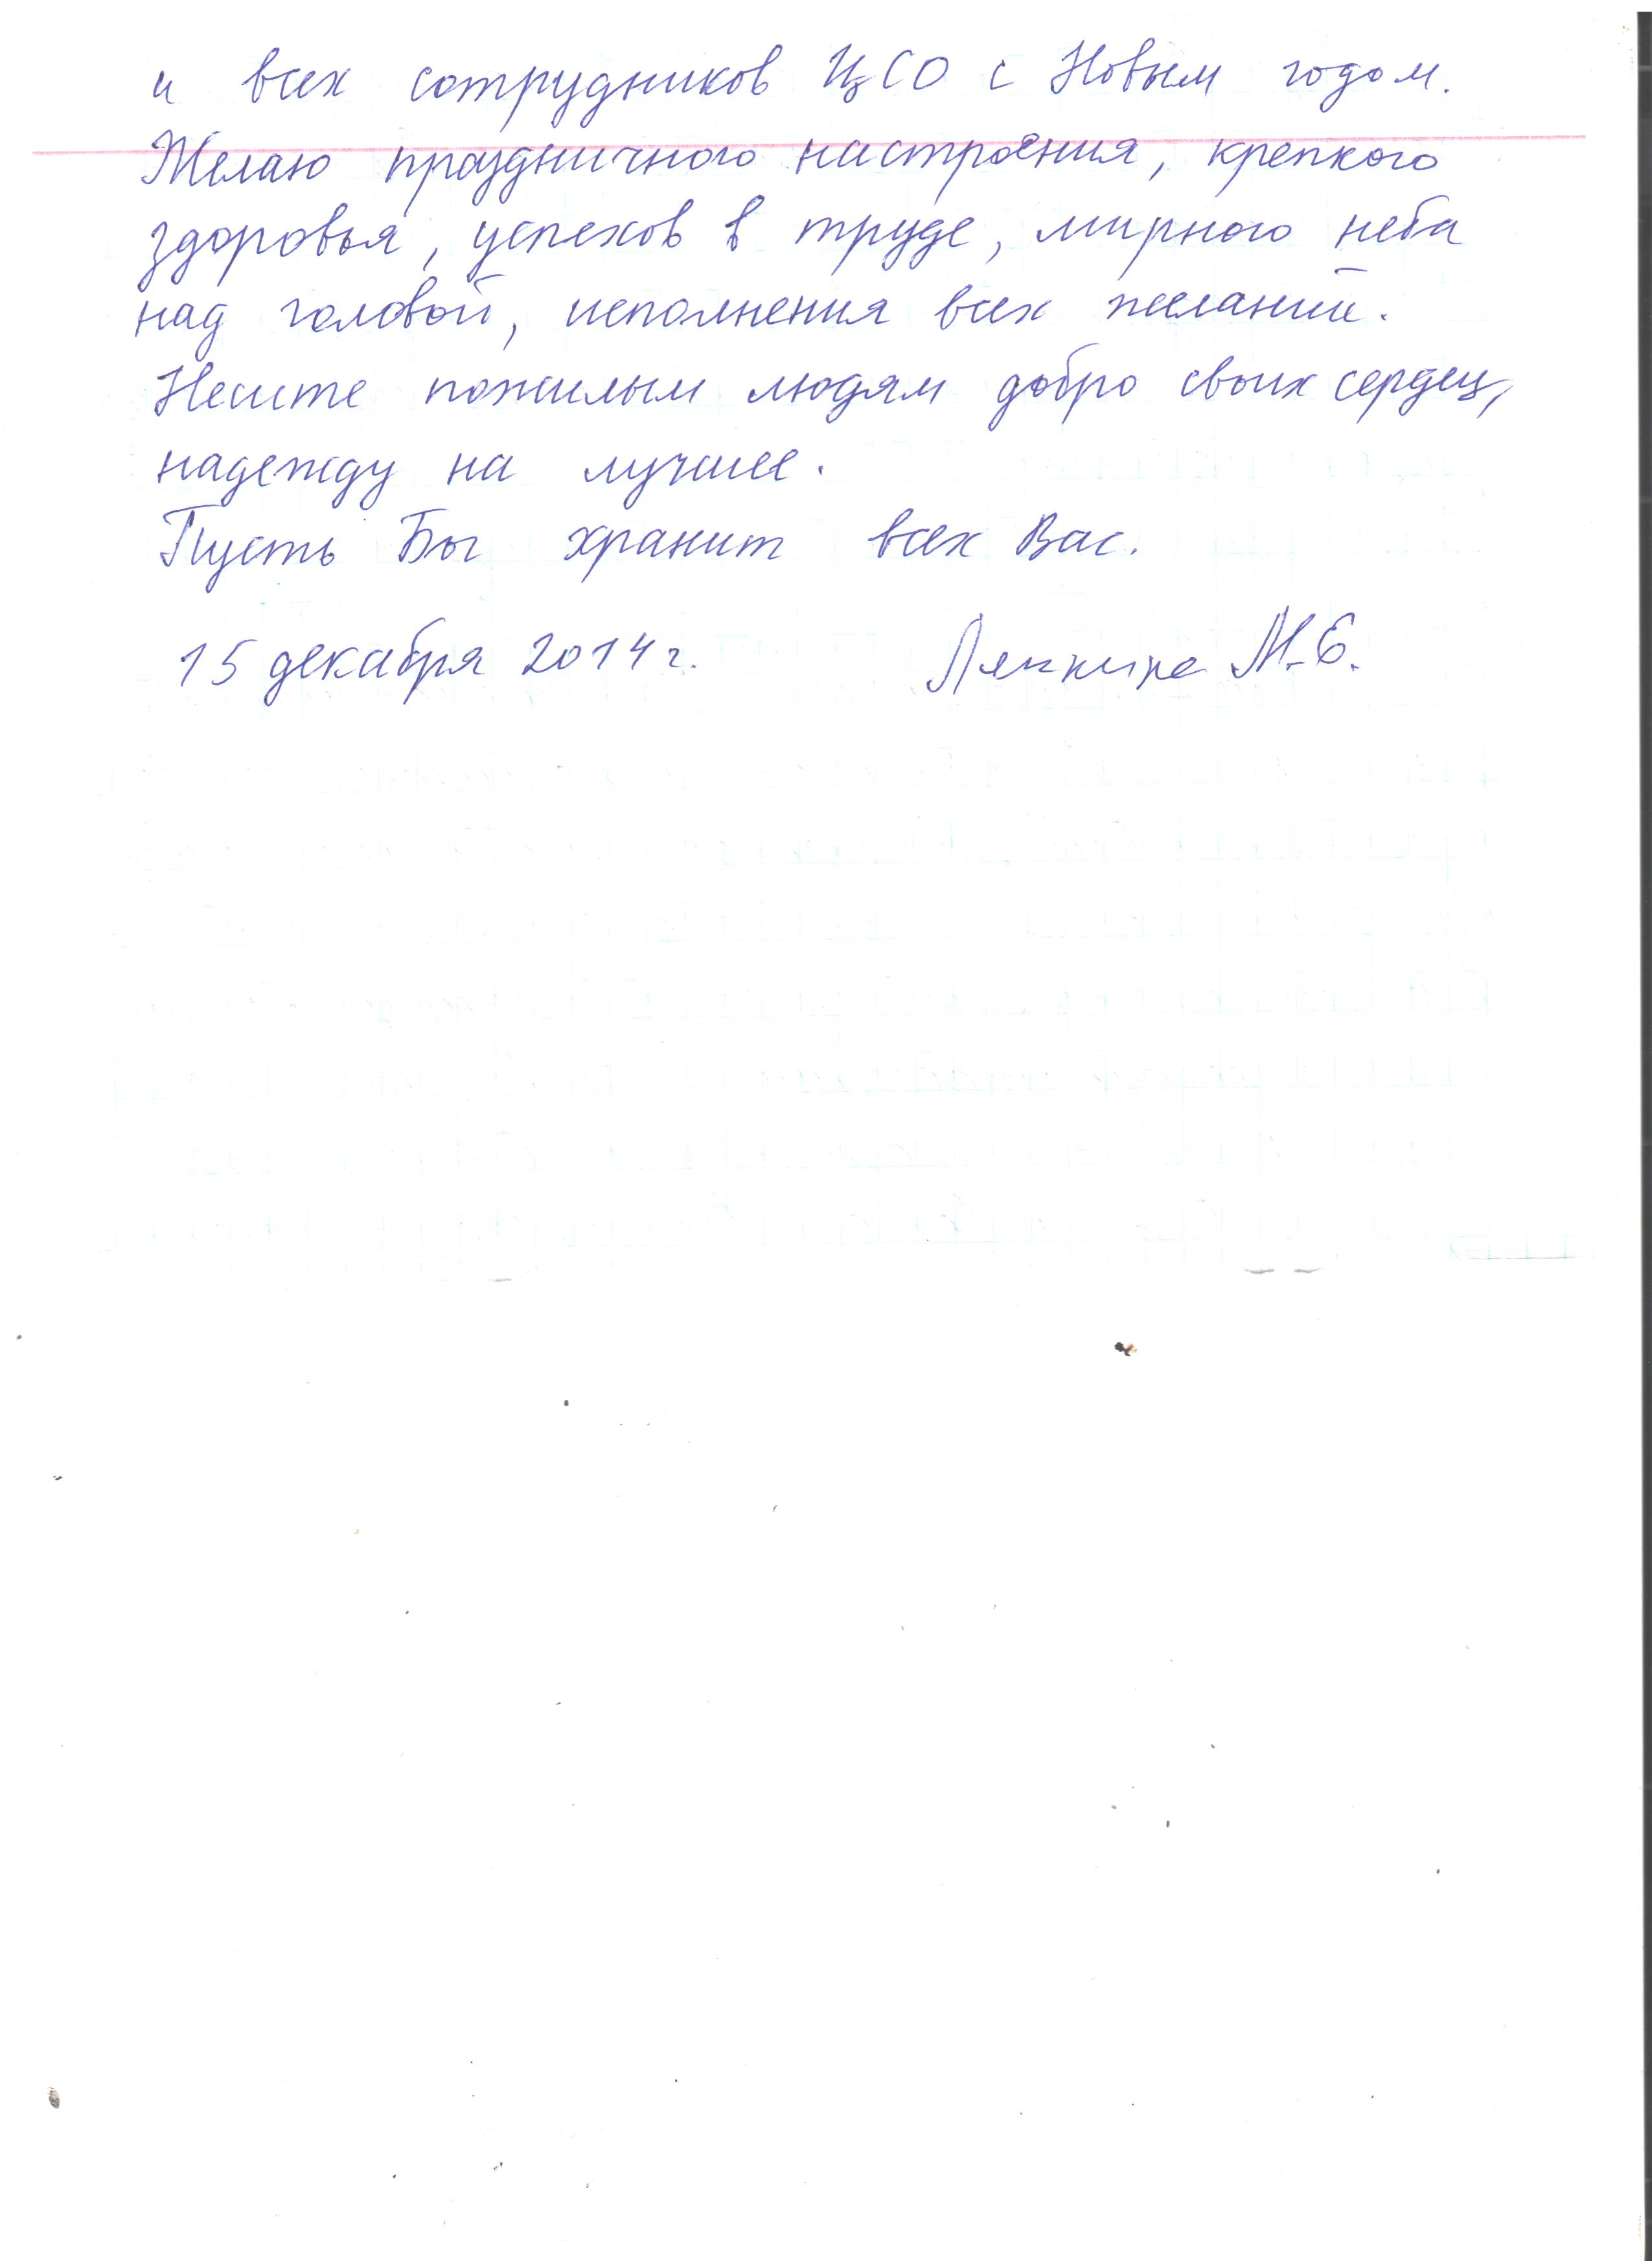 и всех сотрудников ЦСО с Новым годом.
Желаю праздничного настроения, крепкого
здоровья, успехов в труде, мирного неба
над головой, исполнения всех желаний.
Несите пожилым людям добро своих сердец,
надежду на лучшее.
Пусть Бог хранит всех Вас.
15 декабря 2014 г. М.Е.